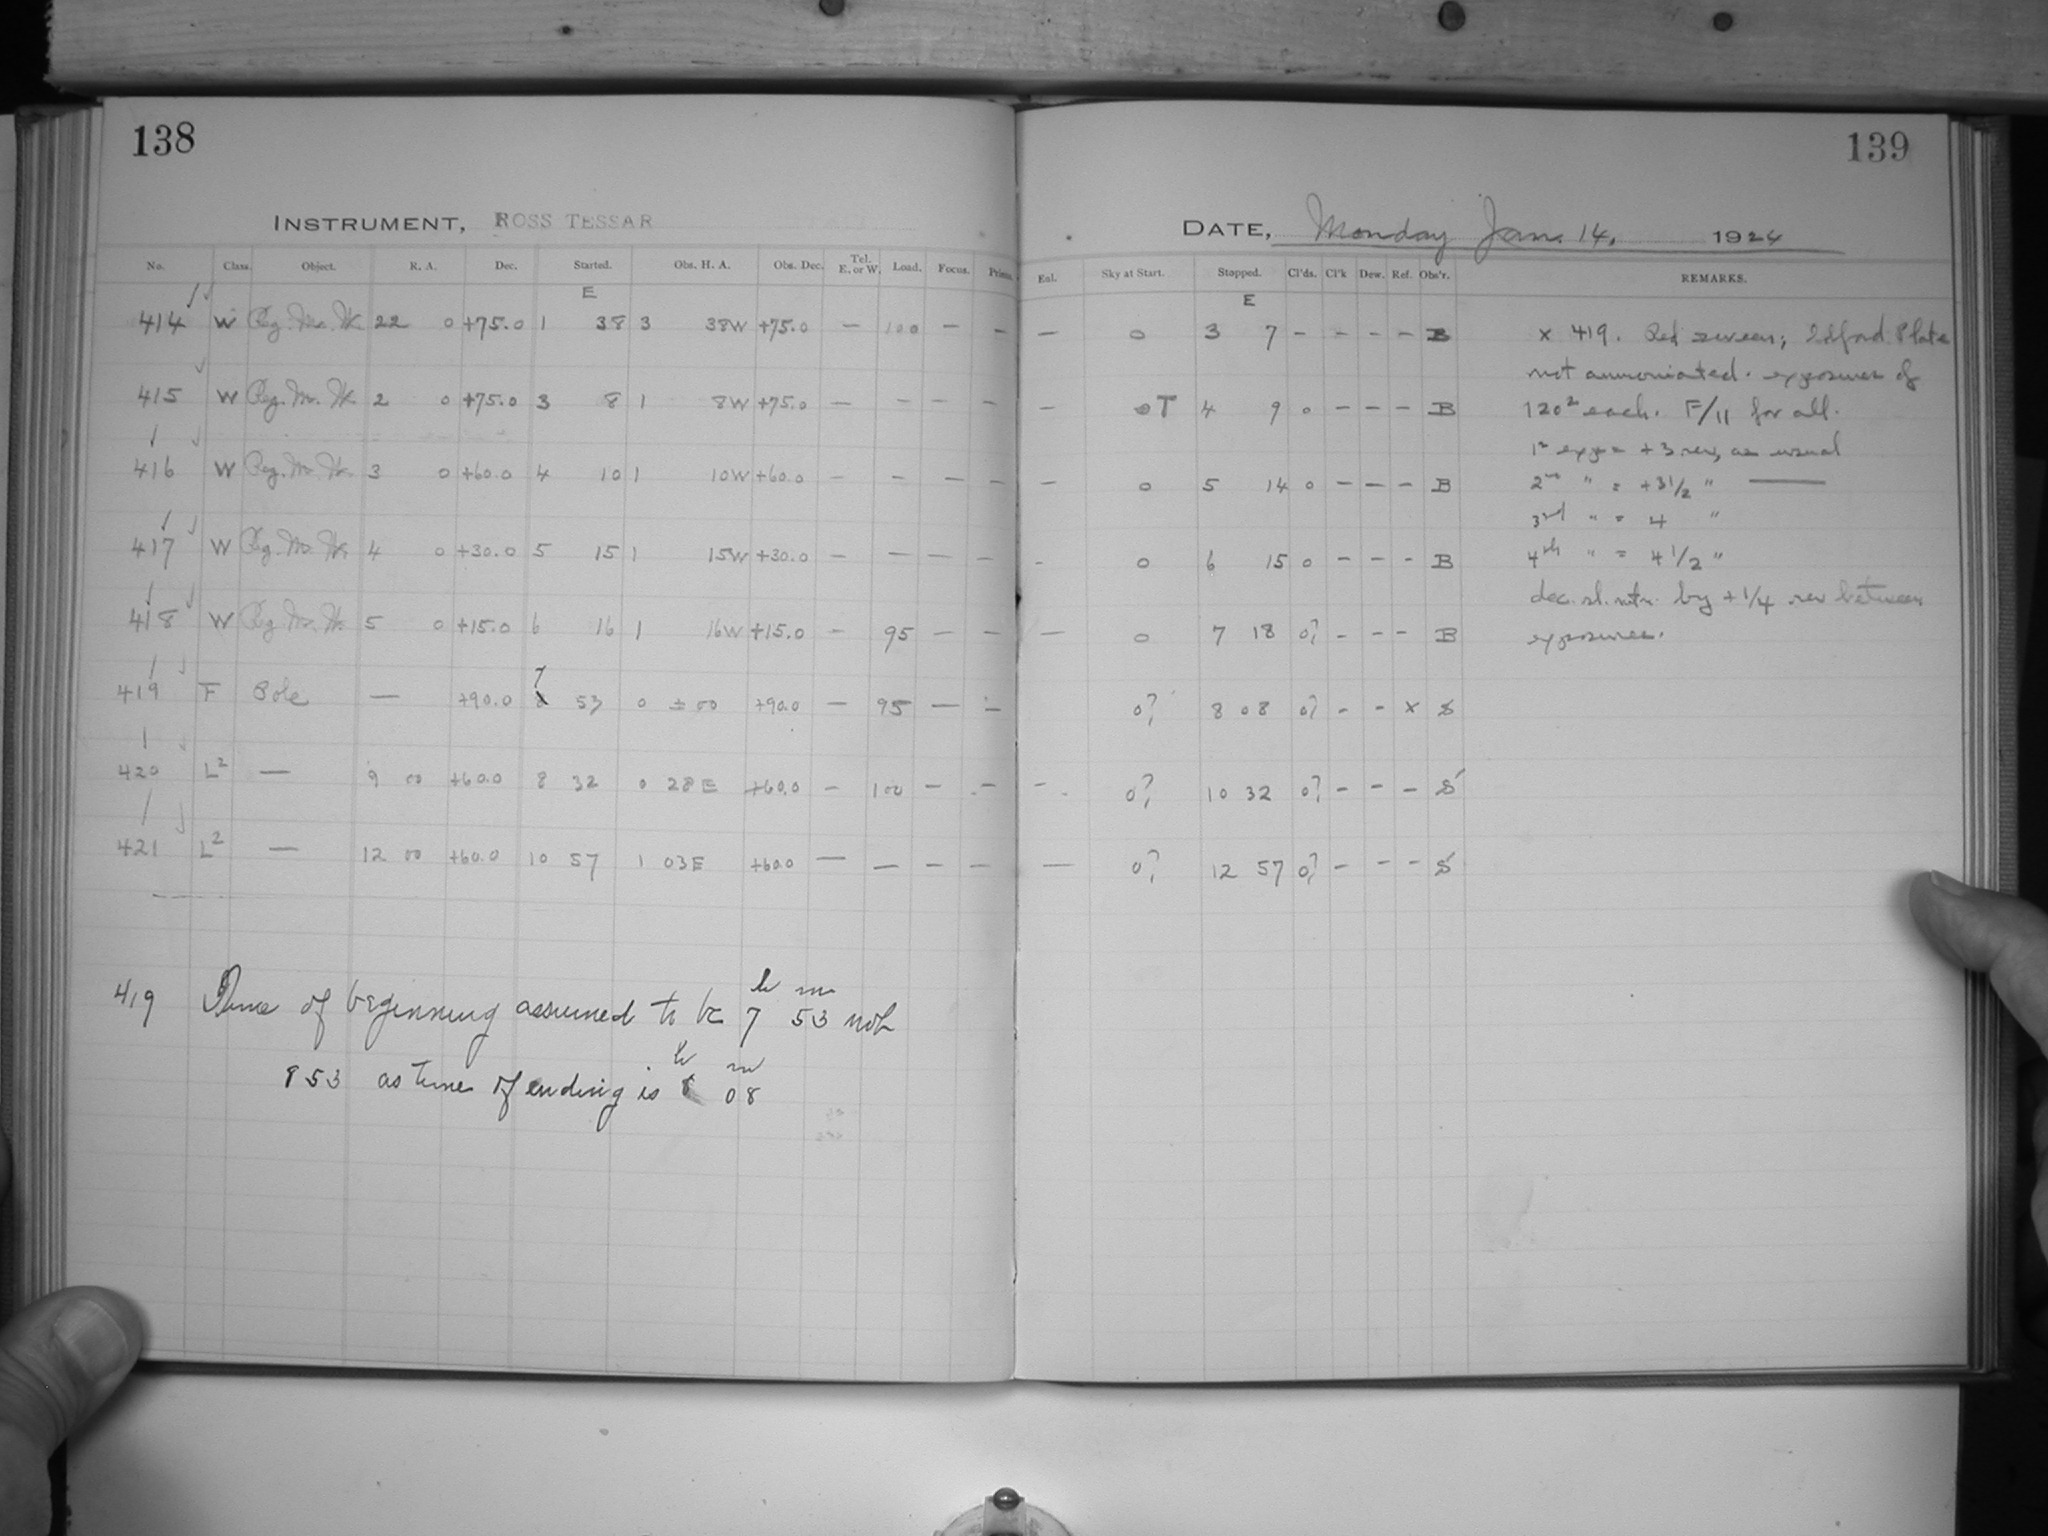 138
INSTRUMENT, ROSS TESSAR
No. Class. Object. R. A. Dec. Started. Obs. H. A. Obs. Dec. Tel. E. or W. Load. Focus. Prisms.
E
414 W Reg. Mo. Wk 22 0 +75.0 1 38 3 38W +75.0 — 100 — —
415 W Reg. Mo. Wk 2 0 +75.0 3 8 1 8W +75.0 — — — —
416 W Reg. Mo. Wk 3 0 +60.0 4 10 1 10W +60.0 — — — —
417 W Reg. Mo. Wk 4 0 +30.0 5 15 1 15W +30.0 — — — —
418 W Reg. Mo. Wk. 5 0 +15.0 6 16 1 16W +15.0 — 95 — —
419 F Pole — +90.0 7 53 0 ±00 +90.0 — 95 — —
420 L² — 9 00 +60.0 8 32 0 28E +60.0 — 100 — —
421 L² — 12 00 +60.0 10 57 1 03E +60.0 — — — —
419 Time of beginning assumed to be 7h 53m not
853 as time of ending is 8h 08m
139
DATE, Monday Jan. 14, 1924
Enl. Sky at Start. Stopped. Cl'ds. Cl'k Dew. Ref. Obs'r. REMARKS.
E
— 0 3 7 - - - - B x 419. Red screen; Ilford Plate
not ammoniated. exposures of
— 0T 4 9 0 - - - B 120ˢ each. F/11 for all.
1st expo = +3 rev, as usual
— 0 5 14 0 - - - B 2nd " = +3 1/2 " —
3rd " = 4 "
- 0 6 15 0 - - - B 4th " = 4 1/2 "
dec. sl. mtn. by +1/4 rev between
— 0 7 18 0? - - - B exposures.
0? 8 08 0? - - x S
- 0? 10 32 0? - - - S
— 0? 12 57 0? - - - S